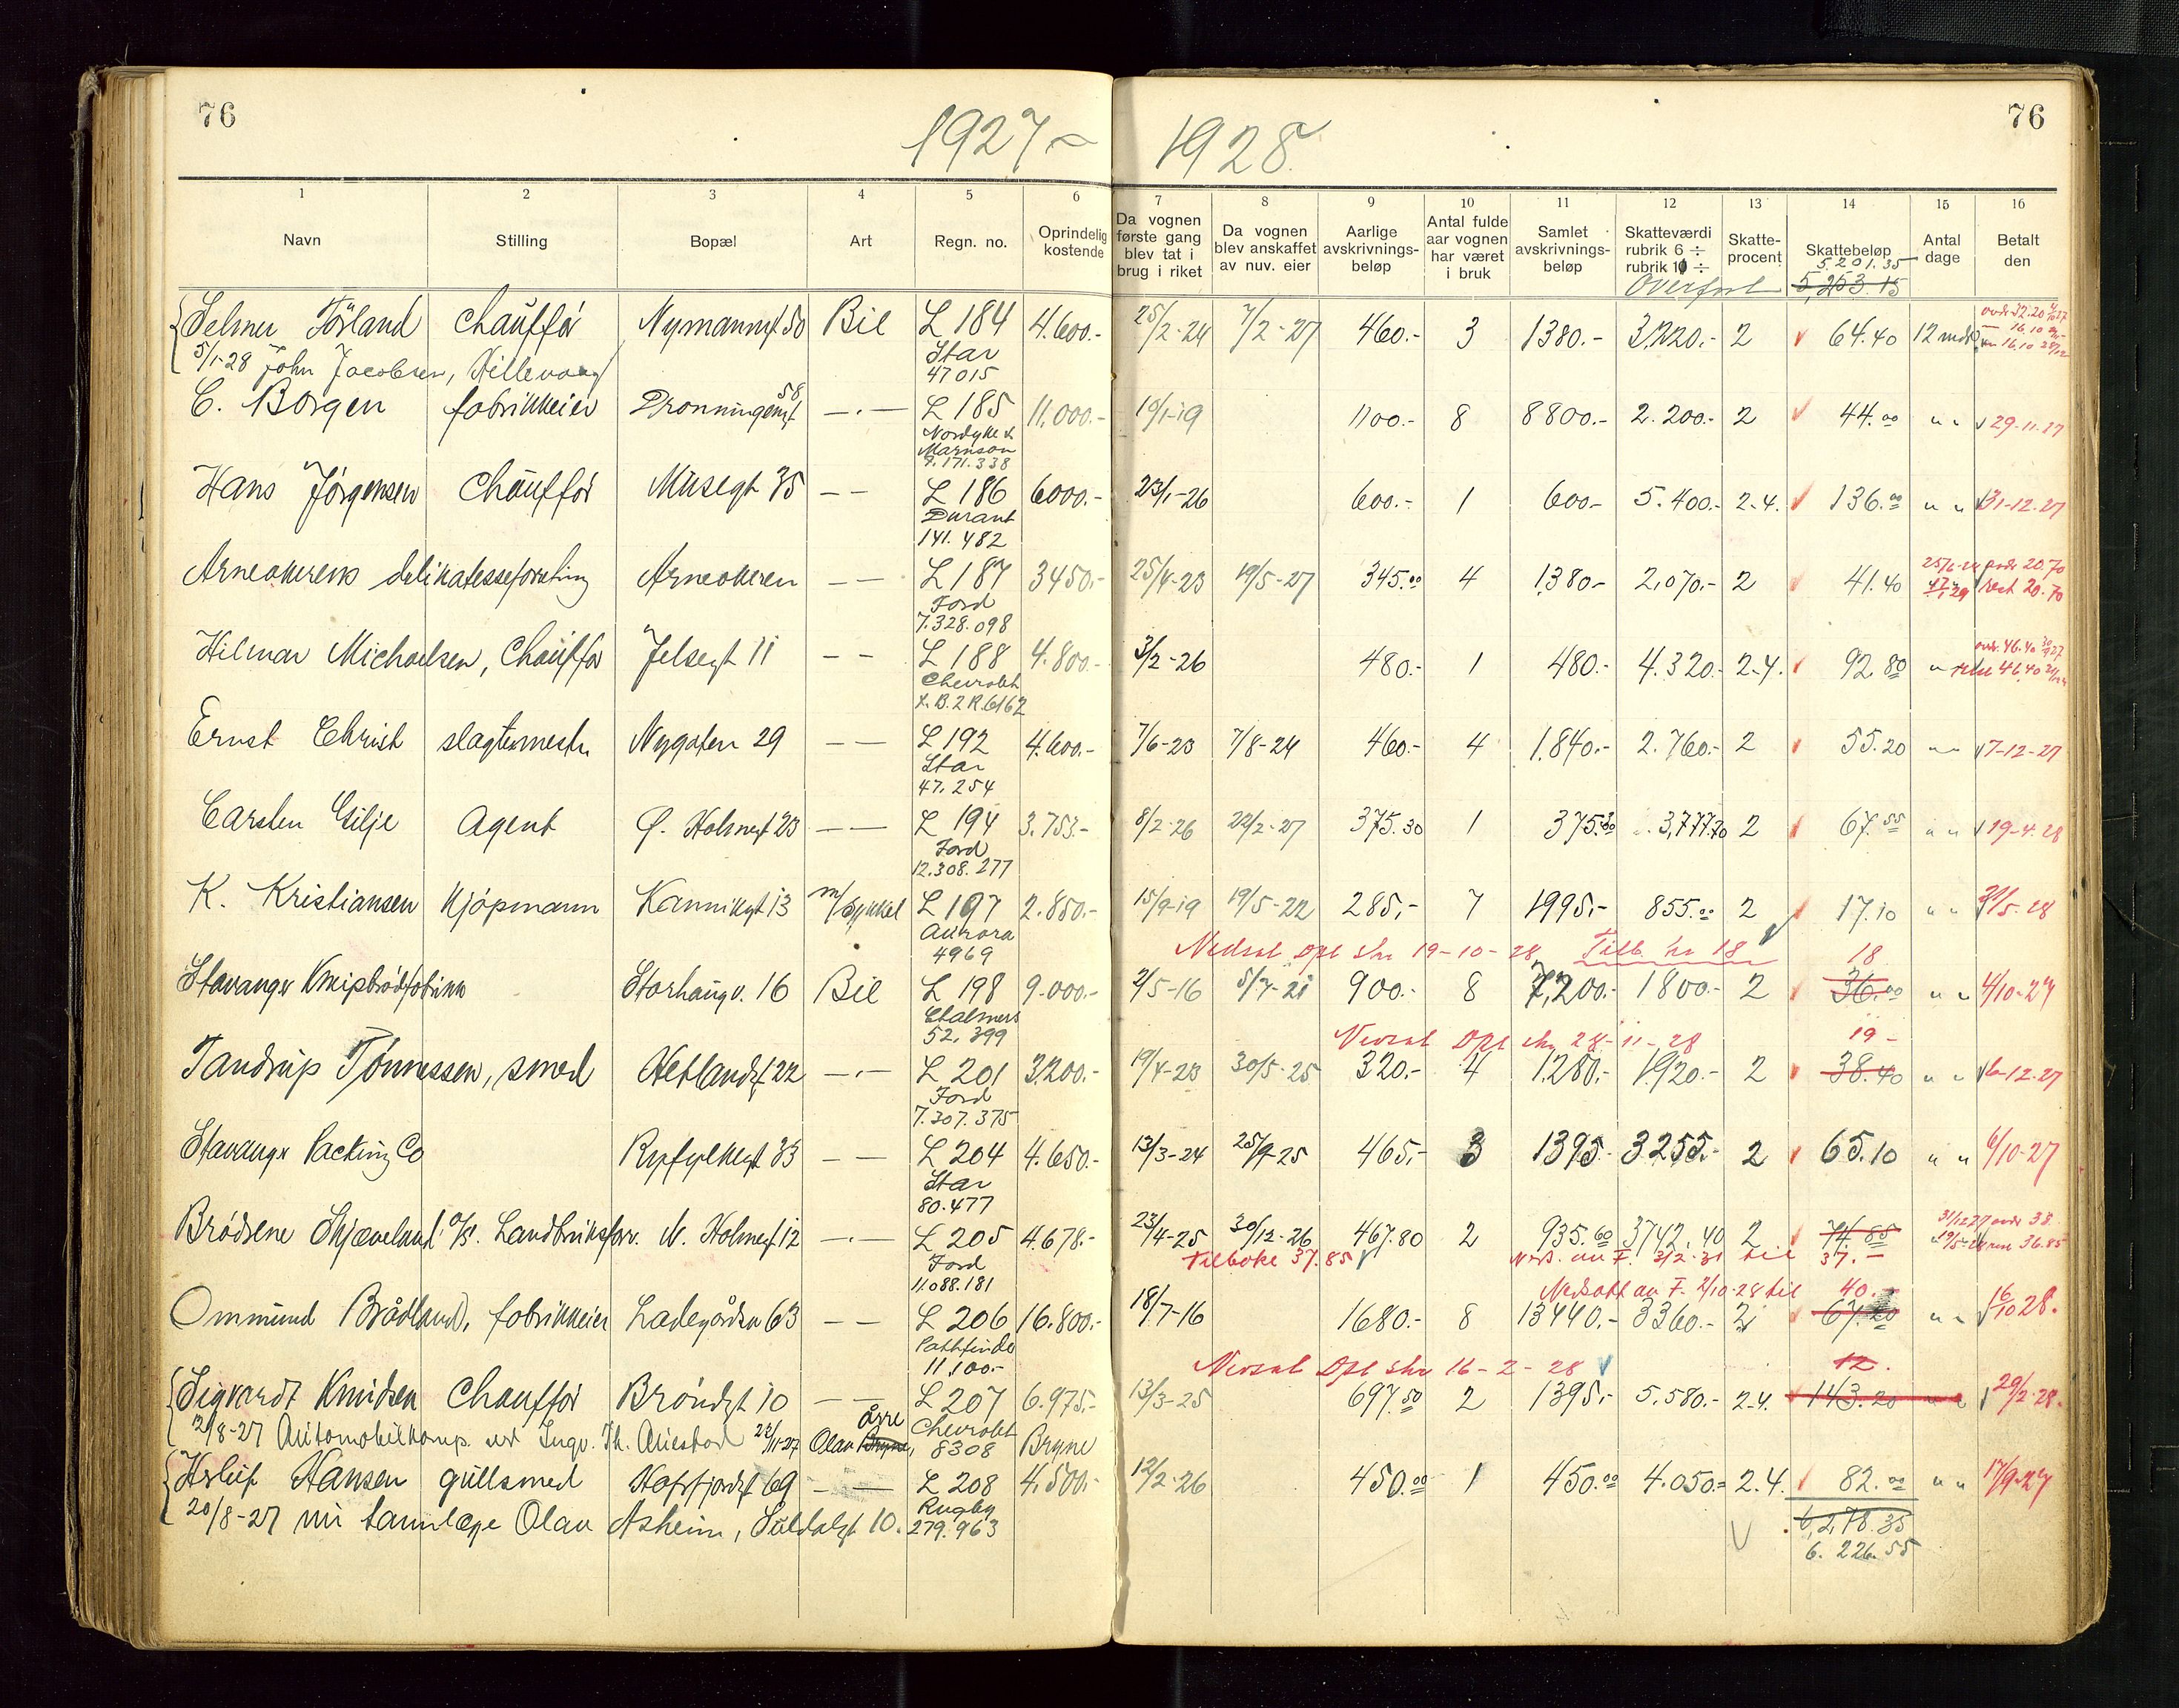 76
76
1927 - 1928.
1 2 3 4 5 6 7 8 9 10 11 12 13 14 15 16
Navn Stilling Bopæl Art Regn. no. Oprindelig kostende Da vognen første gang blev tat i brug i riket Da vognen blev anskaffet av nuv. eier Aarlige avskrivnings-beløp Antal fulde aar vognen har været i bruk Samlet avskrivnings-beløp Skatteværdi rubrik 6 ÷ rubrik 11 ÷ Skatte-procent Skattebeløp Antal dage Betalt den
5.201.35
Overført 5,253.15
Selmer Törland Chauffør Nymannsgt 50 Bil L 184 4.600.- 25/2-24 7/2-27 460.- 3 1380.- 3,220.- 2 64.40 12 mdr
Star
5/1-28 John Jacobsen, Hillevaag 47015
C. Borgen fabrikkeier Dronningensgt 58 -.- L 185 11,000.- 10/1-19 1100.- 8 8800.- 2.200.- 2 44.00 " " 29-11-27
Nordyke &
Marmson
9.171.338
Hans Jørgensen Chauffør Musegt 35 - - L 186 6000.- 23/1-26 600.- 1 600.- 5.400.- 2-4. 136.00 " " 31-12-27
Durant
141.482
Arneakrens delikatesseforretning Arneakren - - L 187 3450.- 25/4-23 19/5-27 345.00 4 1380- 2,070.- 2 41.40 rest 20.70
Ford
7.328.098
Hilmar Michaelsen, Chauffør Jelsegt 11 - - L 188 4.800.- 3/2-26 480.- 1 480.- 4.320.- 2-4. 92.80 " rest 46.40
Chevrolet
L.B.2R.6162
Ernst Christ slagtermestr Nygaten 29 - - L 192 4.600.- 7/6-23 7/8-24 460.- 4 1.840.- 2.760.- 2 55.20 " " 7-12-27
Star
47.254
Carsten Gilje Agent Ø. Holmegt 23 - - L 194 3.753.- 8/2-26 22/2-27 375.30 1 375.30 3,377.70 2 67.55 " " 19-4-28
Ford
12.308.277
K. Kristiansen Kjøpmann Kannikgt 13 m/sykkel L 197 2.850.- 15/9-19 19/5-22 285.- 7 1995.- 855.00 2 17.10 " " 31/5-28
Aurora
4969
Nedsat Opl skr 19-10-28 Tilb. kr 18 18
Stavanger Kneipbrødfabrikk Storhaugv. 16 Bil L 198 9.000.- 2/5-16 5/7-21 900.- 8 7,200.- 1800.- 2 36.00 " " 4/10-27
Chalmers
52,399
Nedsat Opl skr 28-11-28 19-
Tandrup Tönnessen, smed Hetlandsgt 22 -.- L 201 3,200.- 19/4-23 30/5-25 320.- 4 1.280.- 1920.- 2 38.40 " " 6-12-27
Ford
7.307.375
Stavanger Packing Co Ryfylkegt 33 - - L 204 4.650.- 13/3-24 25/9-25 465.- 3 1395.- 3255.- 2 65.10 " " 6/10-27
Star
80.477
Brødrene Skjæveland A/S. Landbruksforr. N. Holmegt 12 -.- L 205 4.678.- 23/4-25 30/12-26 467.80 2 935.60 3742.40 2 74.85
Ford
11.088.181
Tilbake 37.85 Neds. av F. 3/2-31 til 37.-
Nedsatt av F. 2/10-28 til 40.-
Ommund Brådland, fabrikkeier Ladegårdsv 63 - - L 206 16.800.- 18/7-16 1680.- 8 13440.- 3360.- 2 67.20 " " 16/10 28.
Pathfinder
11,100.-
Nedsat Opl skr 16-2-28 12.
Sigvardt Knudsen Chauffør Brøndgt 10 - - L 207 6.975.- 13/3-25 697.50 2 1395.- 5.580.- 2-4. 143.20 " " 29/2-28.
Chevrolet
12/8-27 Automobilkomp. ved Ingv. Th. Auestad 22/11-27 Olav Bryne, Årre 8308 Bryne
Herleif Hansen gullsmed Hafrsfjordgt 69 - - L 208 4.500.- 12/2-26 450.00 1 450.00 4.050.- 2.4. 82.00 " " 17/9-27
Rugby
20/8-27 nu tannlæge Olav Asheim, Suldalsgt 10. 279.963
6,278.35
6.226.55